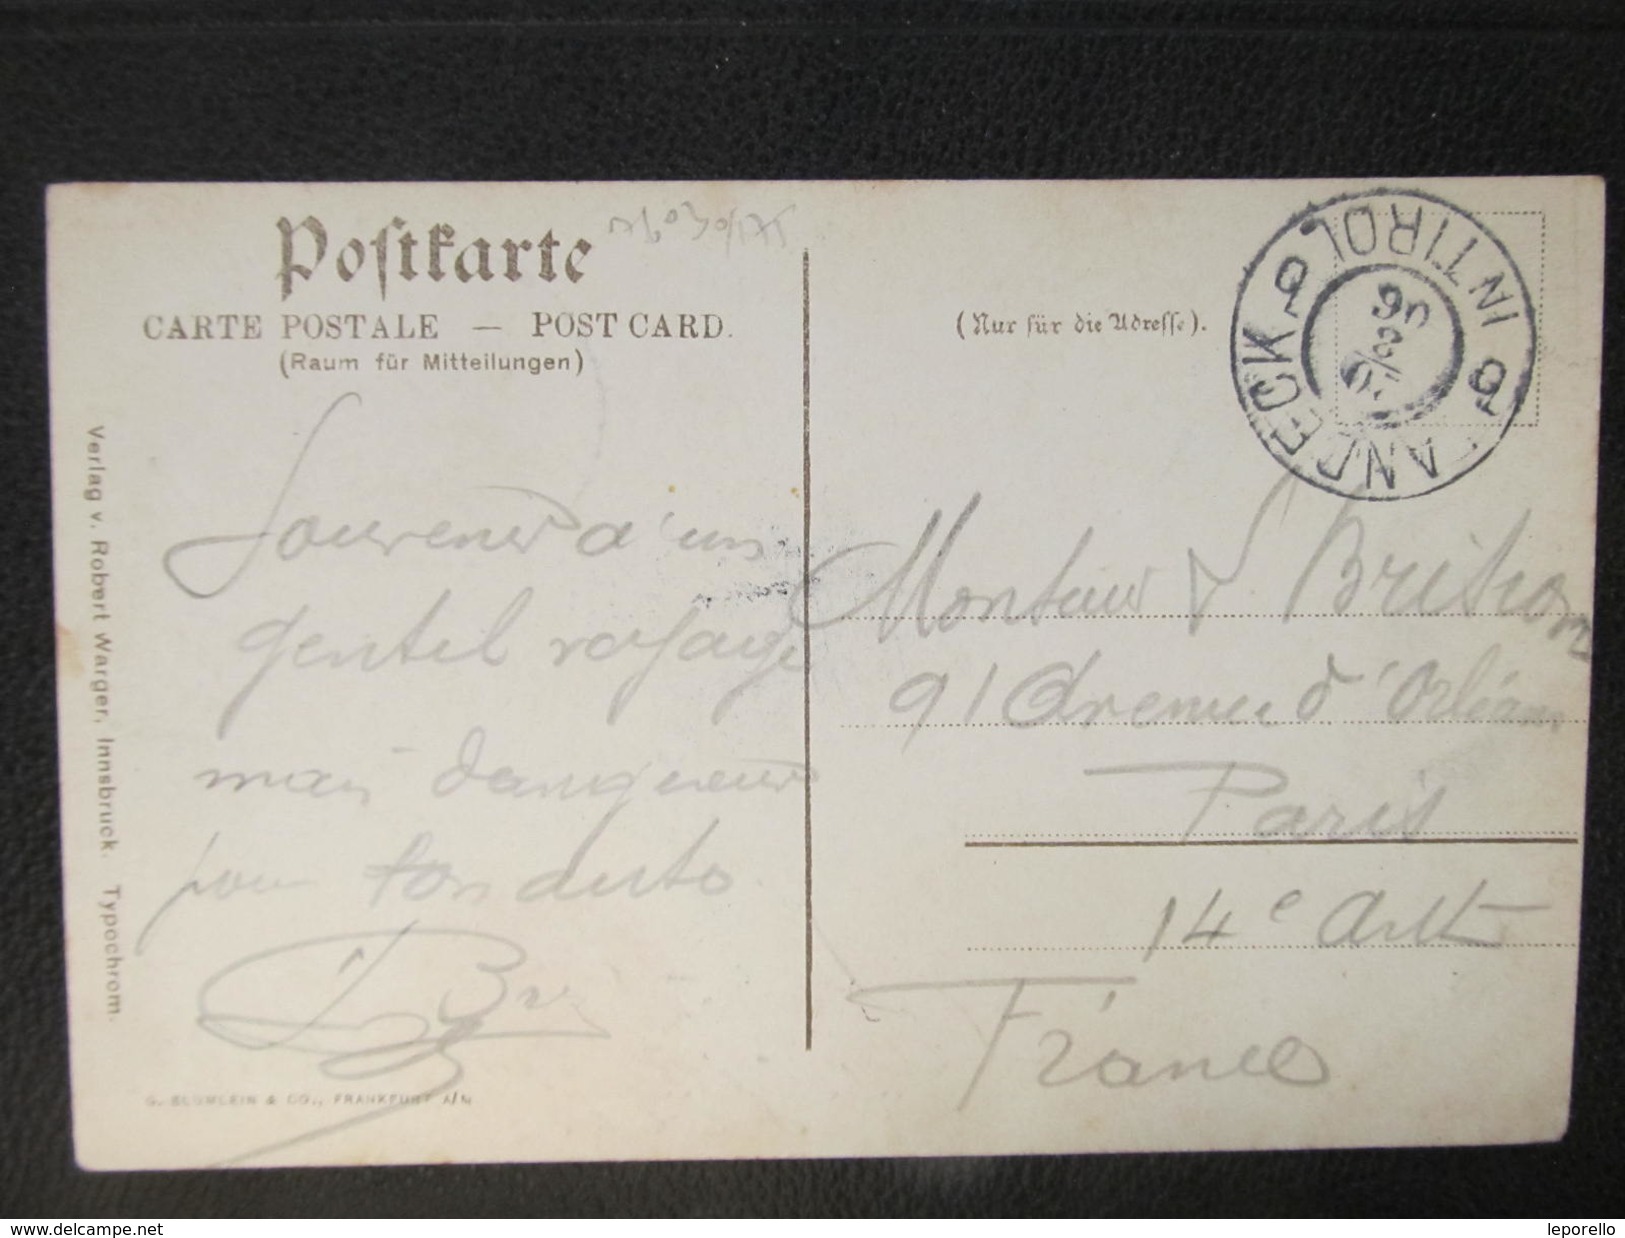 Postkarte
CARTE POSTALE — POST CARD.
(Raum für Mitteilungen)
(Nur für die Adresse).
LANDECK IN TIROL
Souvenir d'un
gentil voyage
mais dangereux
pour
Monsieur V. Brisson
91 Avenue d'Orléans
Paris
14e Arrt
France
Verlag v. Robert Warger, Innsbruck. Typochrom.
G. BLÜMLEIN & CO., FRANKFURT A/M
www.delcampe.net
leporello